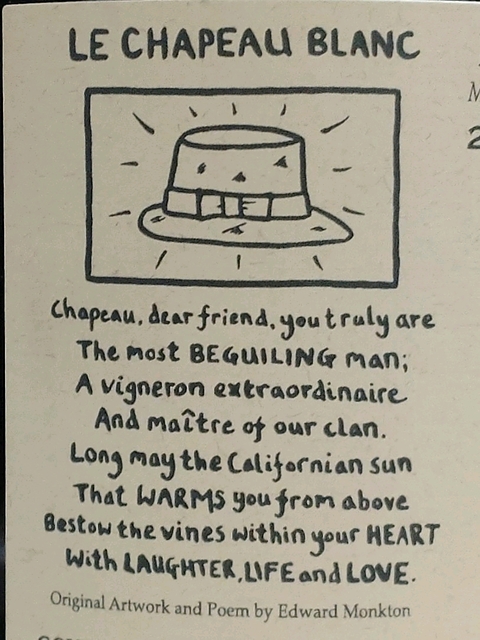 LE CHAPEAU BLANC
Chapeau, dear friend, you truly are
The most BEGUILING man;
A vigneron extraordinaire
And maître of our clan.
Long may the Californian sun
That WARMS you from above
Bestow the vines within your HEART
With LAUGHTER, LIFE and LOVE.
Original Artwork and Poem by Edward Monkton